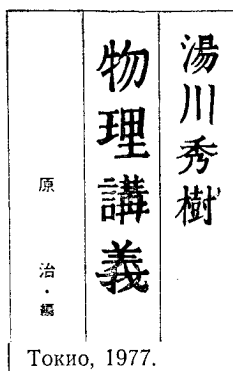 湯川秀樹
物理講義
原治・編
Токио, 1977.